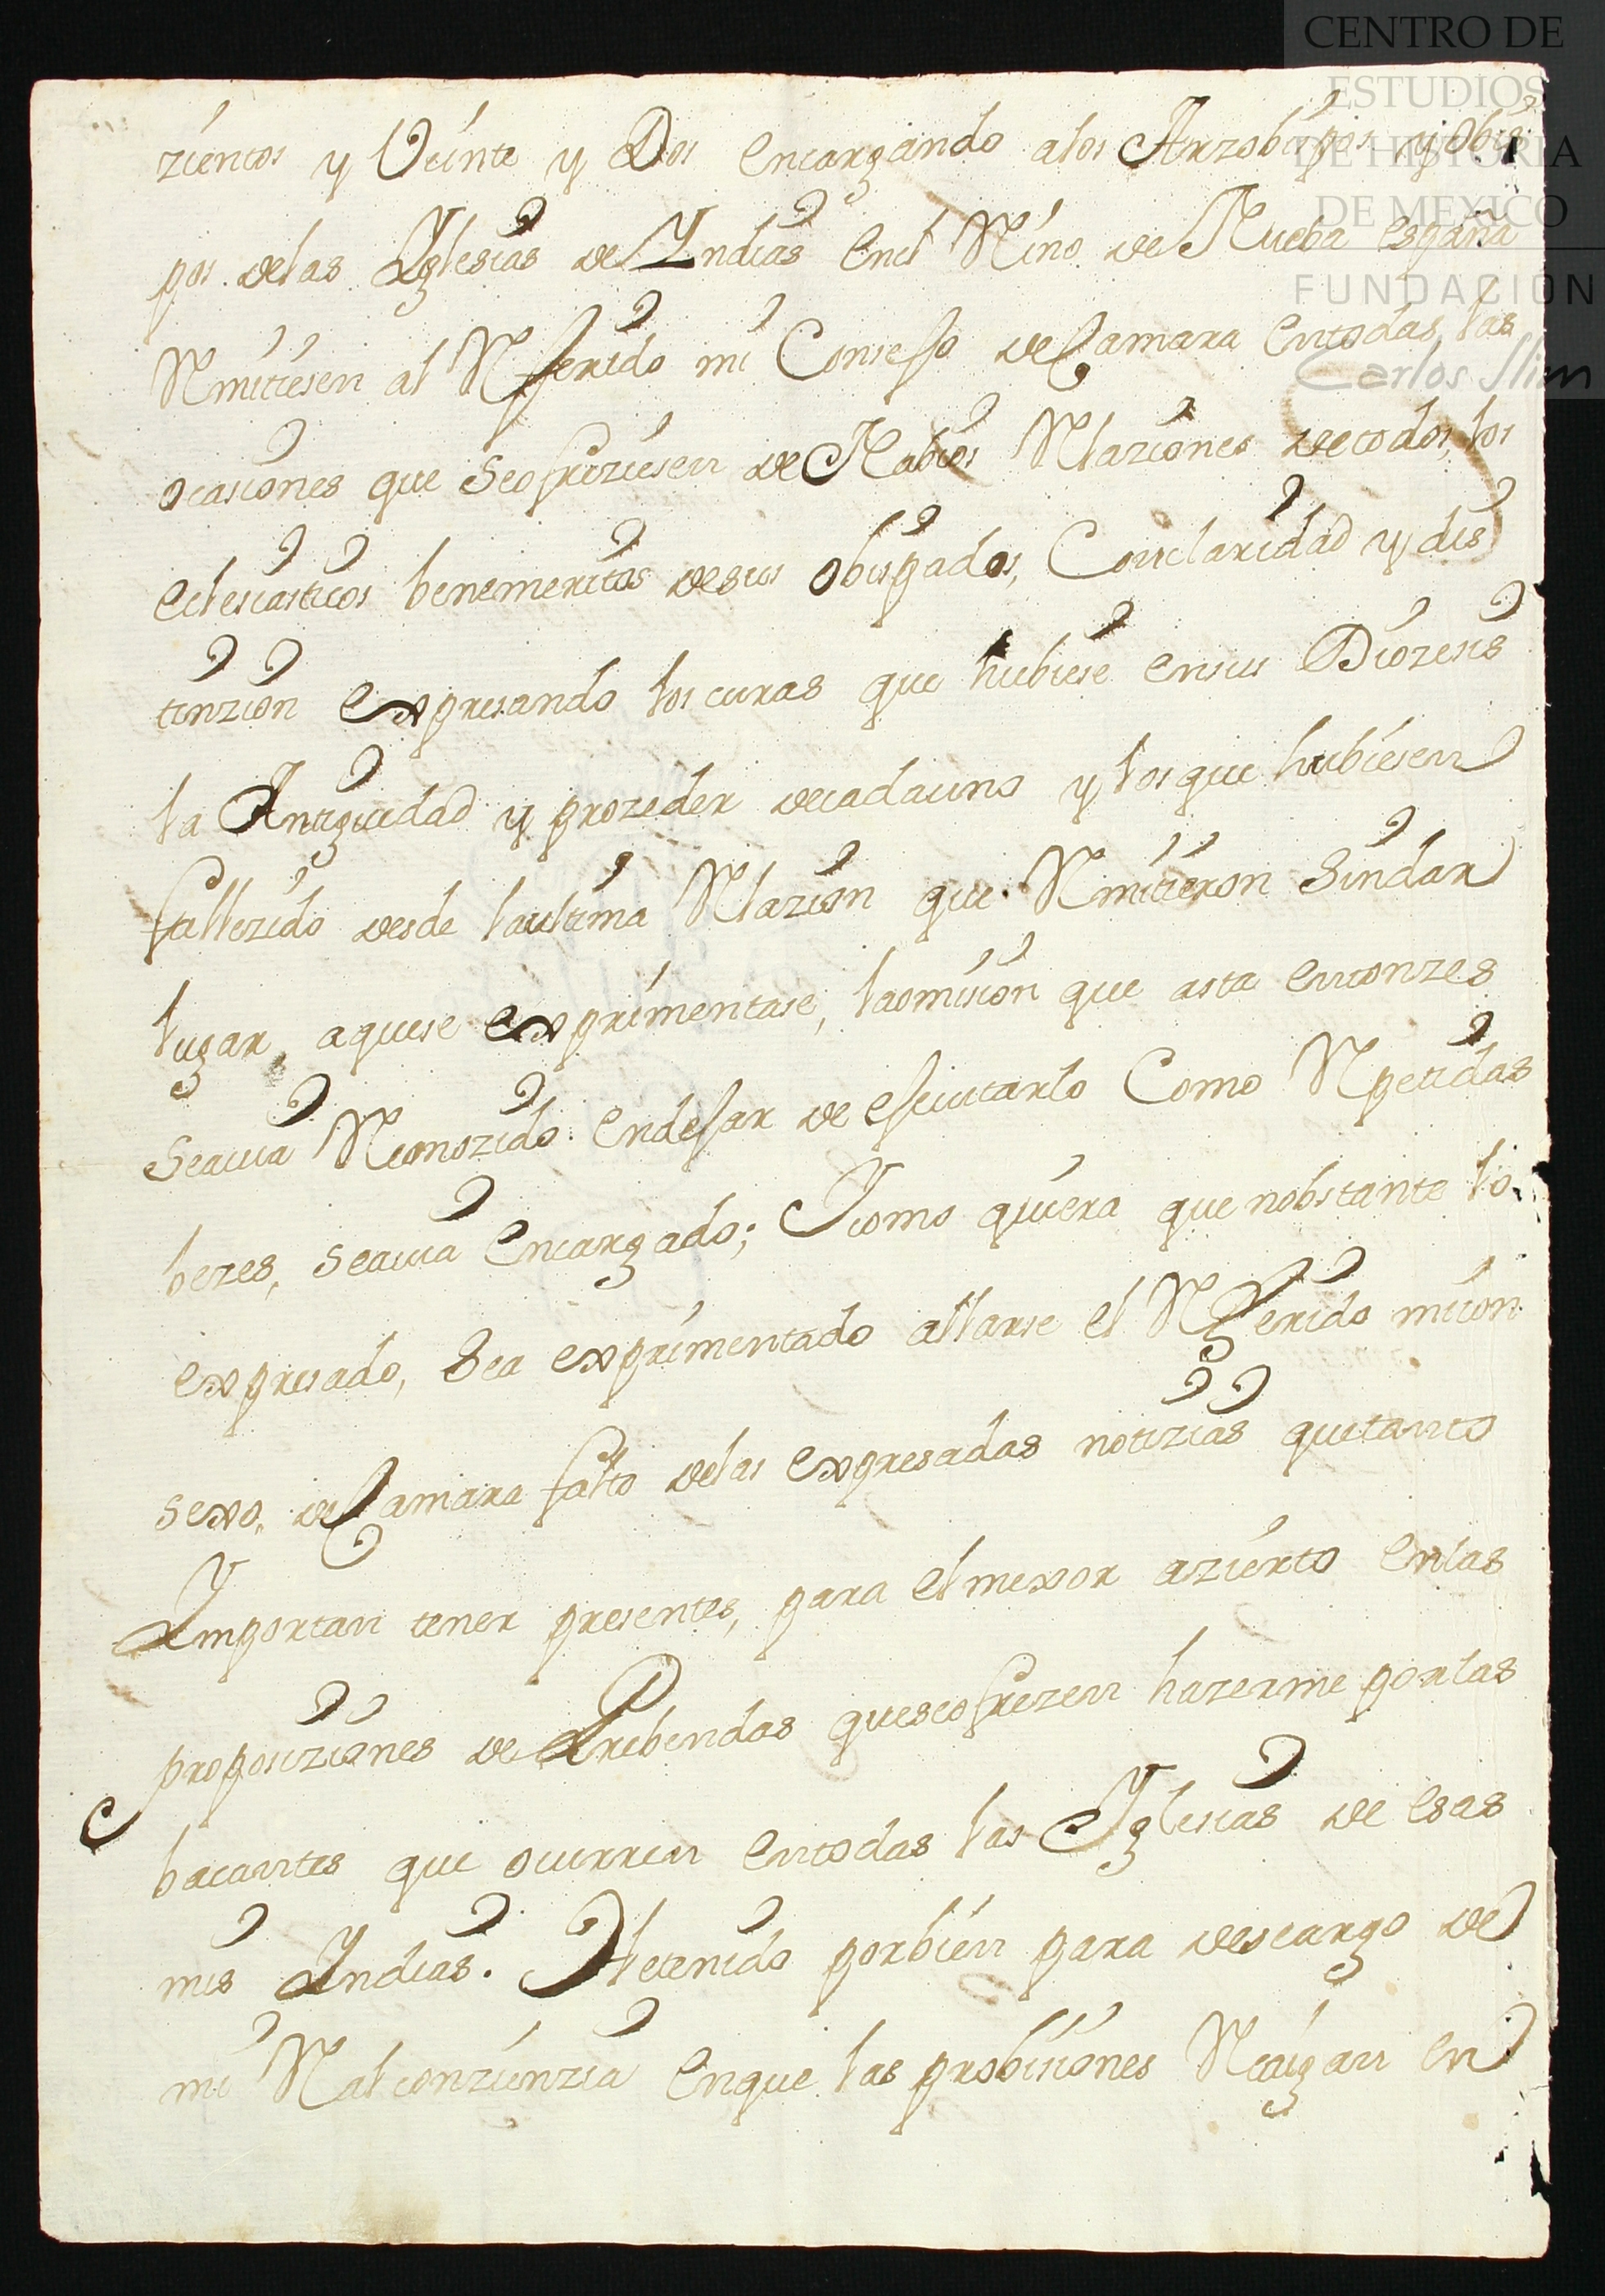 CENTRO DE
ESTUDIOS
DE HISTORIA
DE MEXICO
FUNDACIÓN
Carlos Slim
zientos y Veinte y Dos encargando alos Arzobispos y Obis
pos delas Yglesias de Yndias enel Reino de Nueba españa
Remitiesen al Referido mi Consejo de Camara entodas, las
ocasiones que seofreziesen de Nabios Relaziones detodos, los
eclesiasticos benemeritos desus obispados, Conclaridad y dis
tinzion expresando los curas que hubiese ensus Diozesis
la Antiguedad y prozeder decadauno y losque hubiesen
fallezido desde laultima Relazion que Remitieron sindar
lugar, aquese exprimentase, laomision que asta entonzes
seauia Reconozido endejar de ejecutarlo Como Repetidas
bezes, seauia encargado; Ycomo quiera que nobstante lo
expresado, sea exprimentado allarse el Referido micon
sexo, de Camara falto delas expresadas notizias quetanto
Ymportan tener presentes, para elmexor azierto enlas
proposiziones de Prebendas queseofrezen hazerme porlas
bacantes que ocurren entodas las Yglesias de esas
mis Yndias. Hetenido porbien para descargo de
mi Realconzienzia enque las probisiones Recaigan en